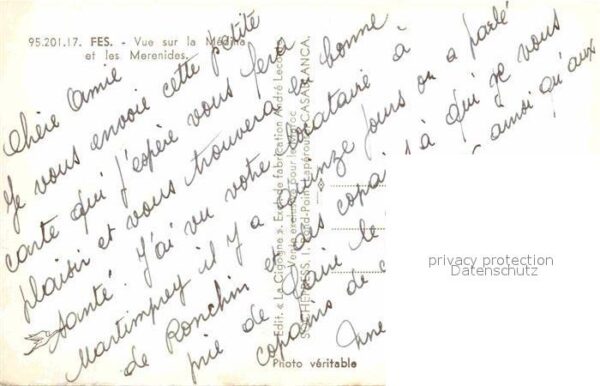 95.201.17. FES. - Vue sur la Médina
et les Merenides.
Chère Amie
Je vous envoie cette petite
carte qui j'espère vous fera
plaisir et vous trouvera en bonne
santé. J'ai vu votre locataire à
Martimprey il y a quinze jours on a parlé
de Ronchin et des copains à qui je vous
prie de faire le ainsi qu'aux
copains de
Edit. « La Cigogne ». Exclu de fabrication André Leconte
Vente exclusive pour le Maroc
SOCHEPRESS, 1 Rond-Point Lapérouse - CASABLANCA.
Photo véritable
privacy protection
Datenschutz